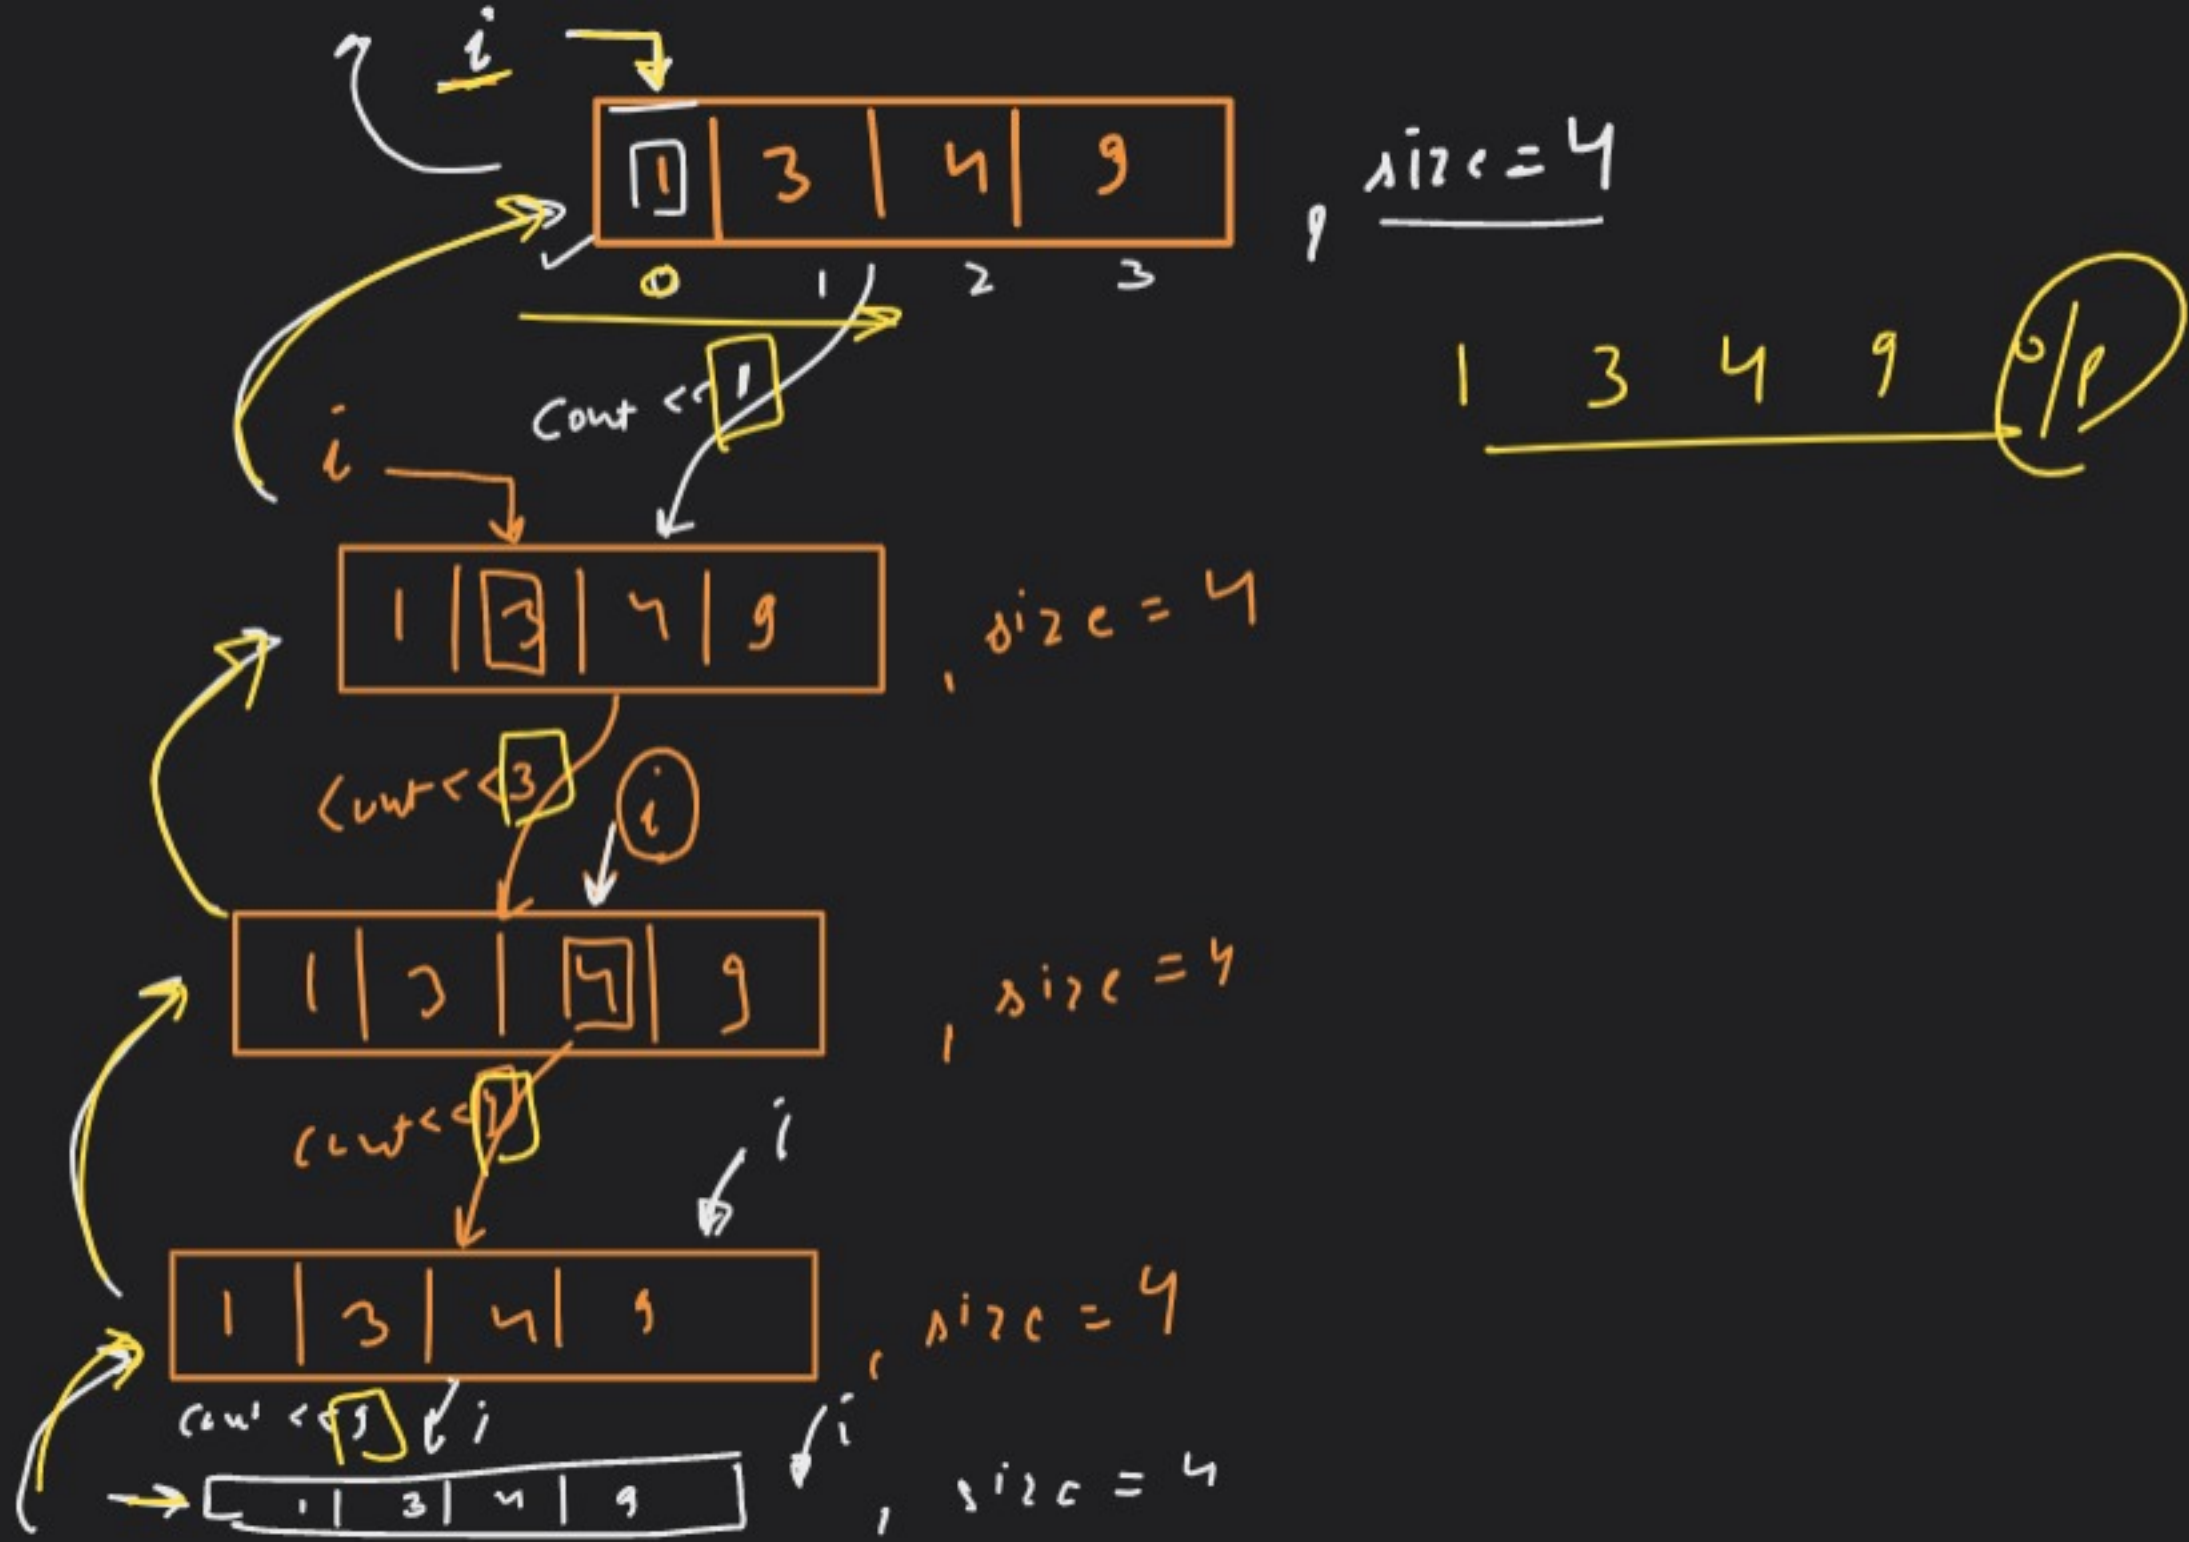 i
1 3 4 9 , size = 4
0 1 2 3
1 3 4 9 o/p
Cout << 1
i
1 3 4 9 , size = 4
Cout << 3
i
1 3 4 9 , size = 4
cout <<
i
1 3 4 9 , size = 4
cout << 9 i i
1 3 4 9 , size = 4